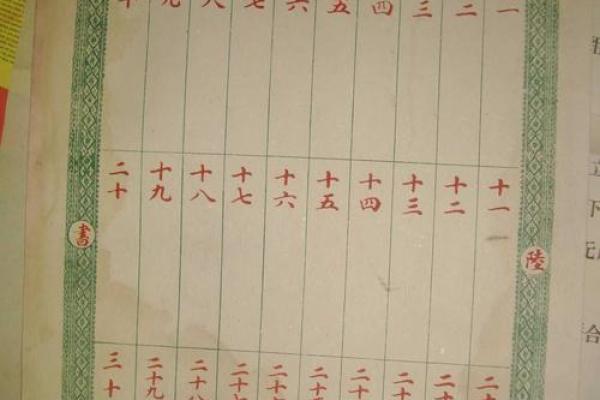 一 二 三 四 五 六 七 八 九 十
十一 十二 十三 十四 十五 十六 十七 十八 十九 二十
二十 二十 二十 二十 二十 二十 二十七 二十八 二十九 三十
陸
書
立
下
合